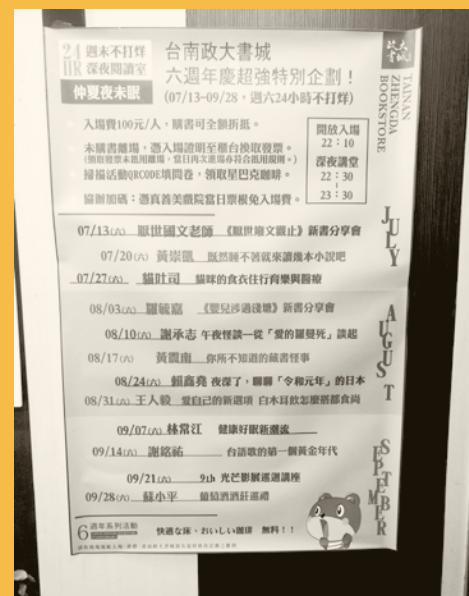 24 HR
週末不打烊
深夜閱讀室
仲夏夜未眠
台南政大書城
六週年慶超強特別企劃！
(07/13-09/28，週六24小時不打烊)
政大書城
TAINAN ZHENGDA BOOKSTORE
入場費100元/人，購書可全額折抵。
未購書離場，憑入場證明至櫃台換取發票。
(領取發票未抵用離場，當日再次進場亦符合抵用規則。)
掃描活動QRCODE填問卷，領取星巴克咖啡。
協辦加碼：憑真善美戲院當日票根免入場費。
開放入場
22：10
深夜講堂
22：30
|
23：30
JULY
07/13(六) 厭世國文老師 《厭世廢文觀止》新書分享會
07/20(六) 黃崇凱 既然睡不著就來讀幾本小說吧
07/27(六) 貓吐司 貓咪的食衣住行育樂與醫療
AUGUST
08/03(六) 羅毓嘉 《嬰兒涉過淺塘》新書分享會
08/10(六) 謝承志 午夜怪談—從「愛的羅曼死」談起
08/17(六) 黃震南 你所不知道的藏書怪事
08/24(六) 賴鑫堯 夜深了，聊聊「令和元年」的日本
08/31(六) 王人毅 愛自己的新選項 白木耳飲怎麼搭都食尚
SEPTEMBER
09/07(六) 林常江 健康好眠新潮流
09/14(六) 謝銘祐 台語歌的第一個黃金年代
09/21(六) 9th 光芒影展巡迴講座
09/28(六) 蘇小平 葡萄酒酒莊巡禮
6 週年系列活動
快適な床、おいしい珈琲 無料！！